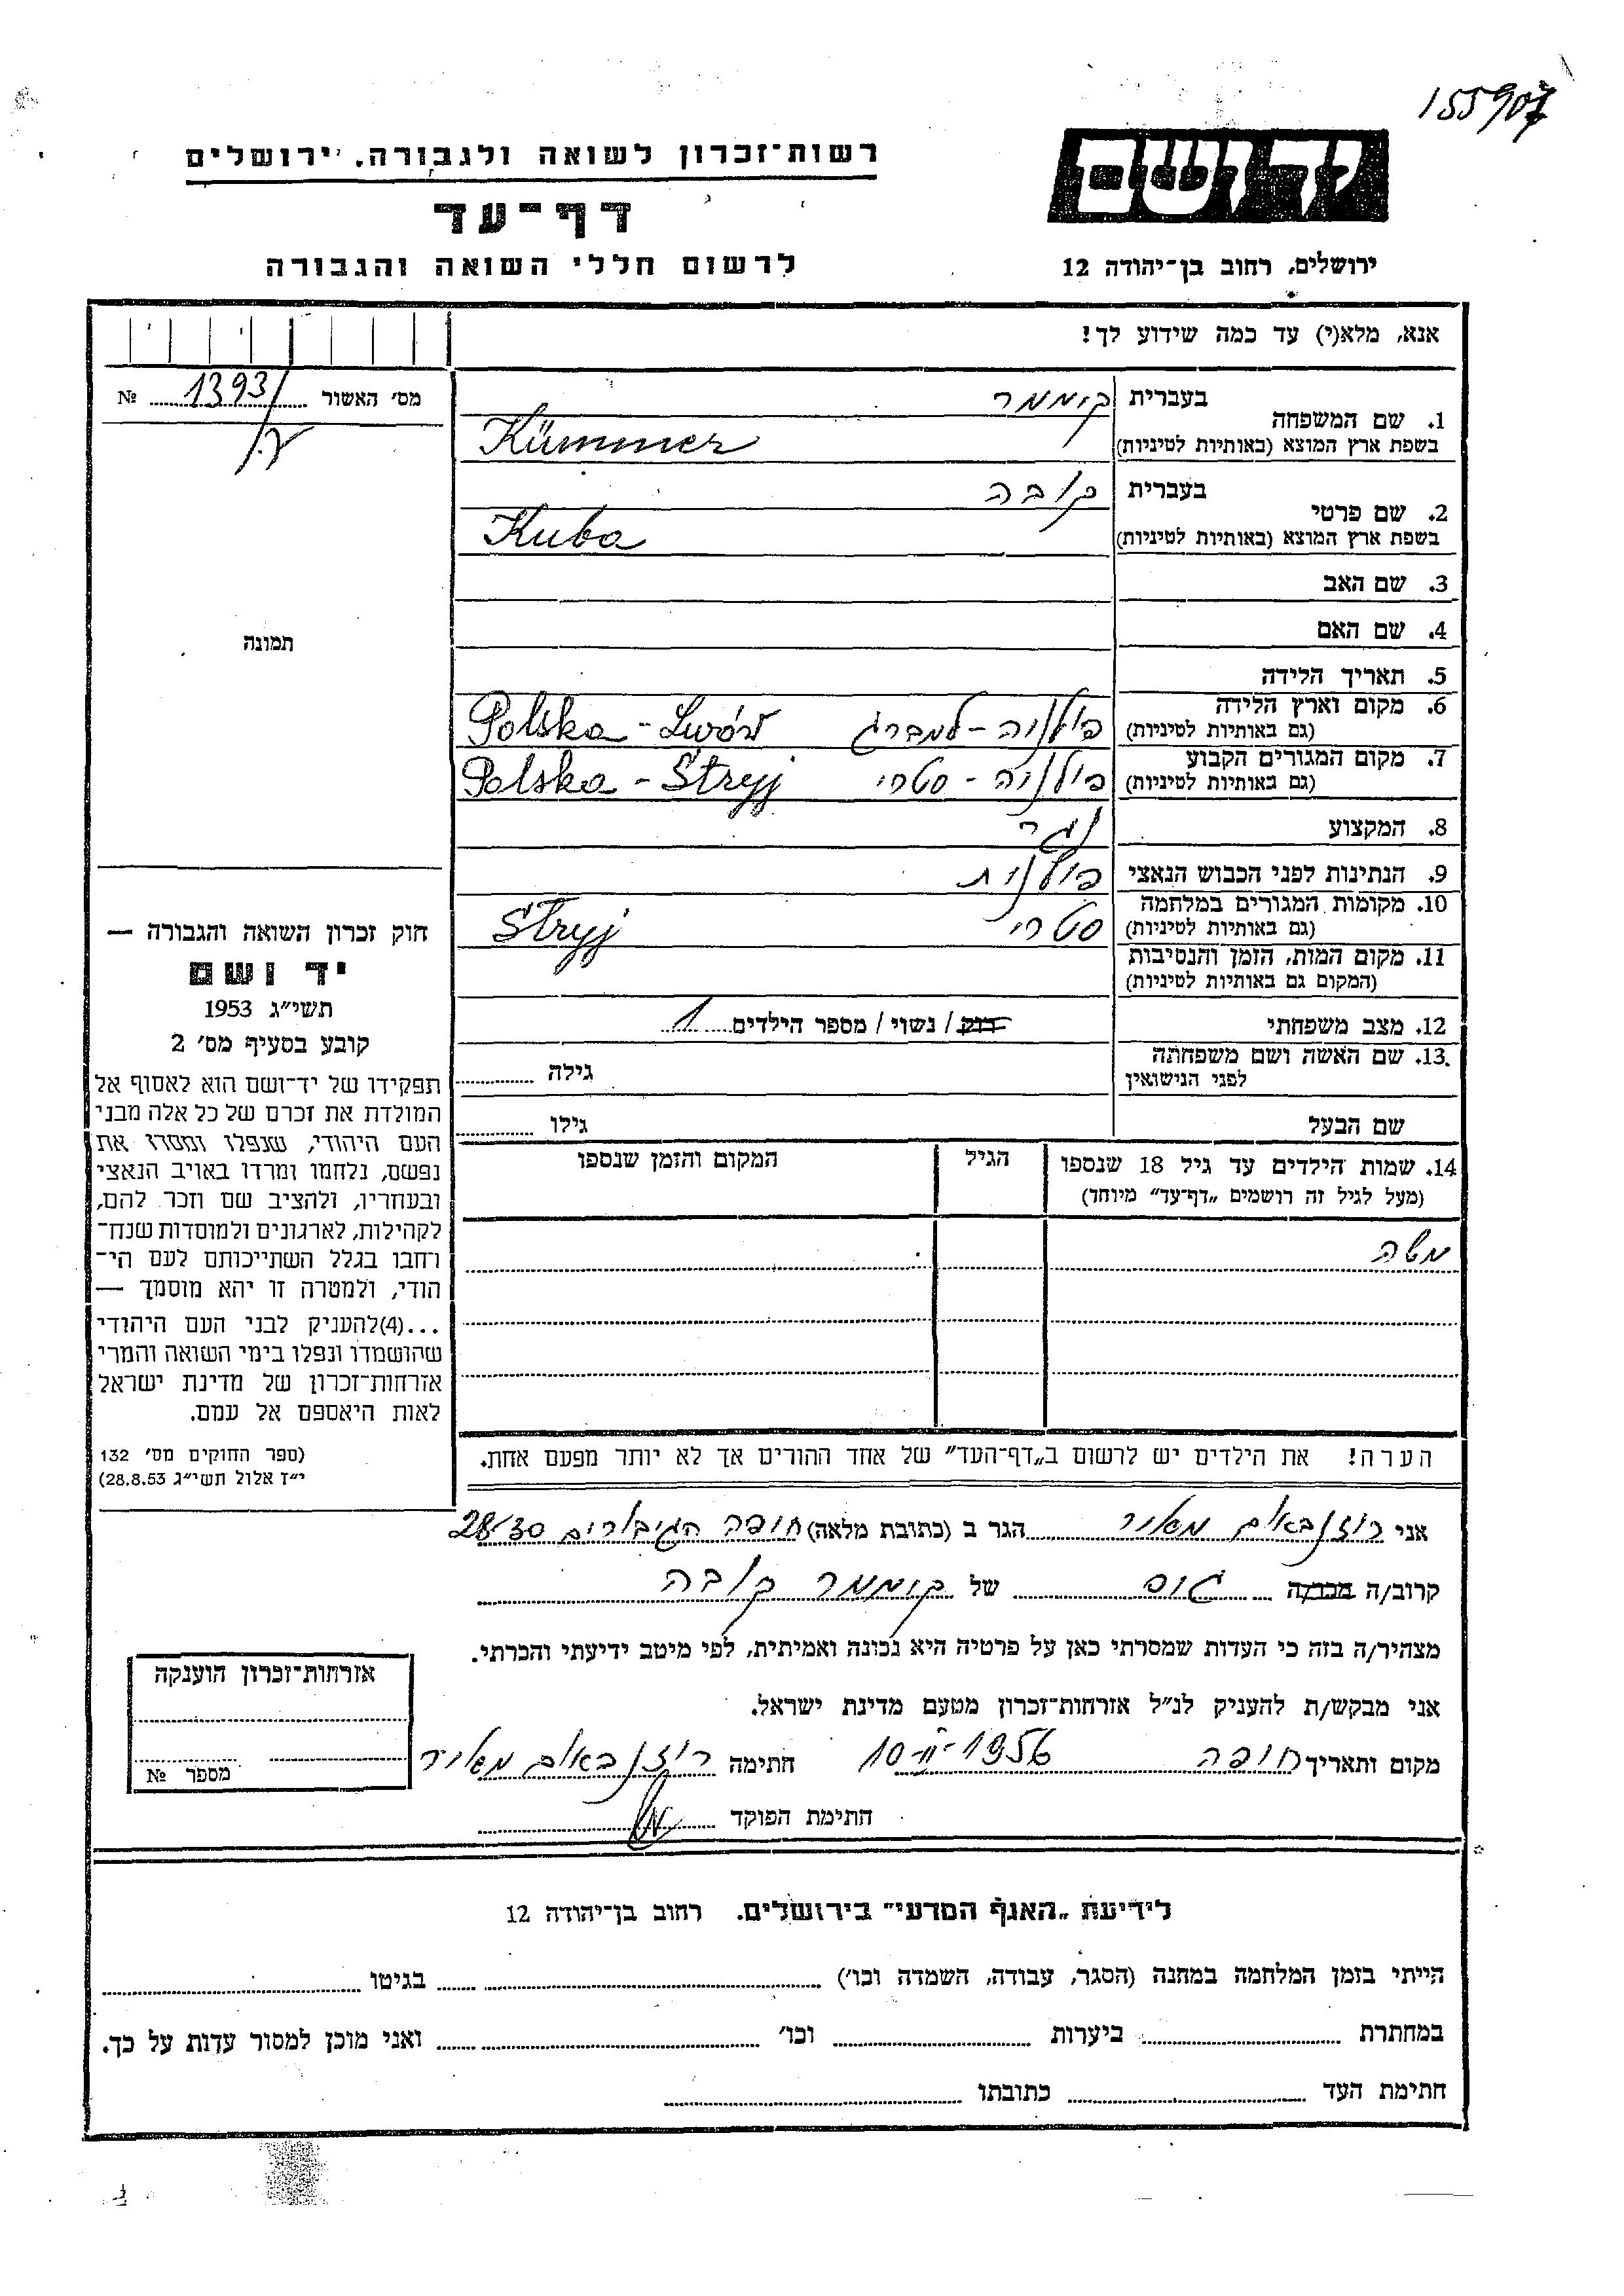 155907
רשות־זכרון לשואה ולגבורה, ירושלים
יד ושם
דף־עד
לרשום חללי השואה והגבורה
ירושלים, רחוב בן־יהודה 12
אנא, מלא(י) עד כמה שידוע לך!
מס׳ האשור 1393 №
1. שם המשפחה
בעברית קיממר
בשפת ארץ המוצא (באותיות לטיניות) Kümmer
2. שם פרטי
בעברית קובה
בשפת ארץ המוצא (באותיות לטיניות) Kuba
3. שם האב
4. שם האם
תמונה
5. תאריך הלידה
6. מקום וארץ הלידה פולניה - למברג Polska - Lwów
(גם באותיות לטיניות)
7. מקום המגורים הקבוע פולניה - סטרי Polska - Stryj
(גם באותיות לטיניות)
8. המקצוע
9. הנתינות לפני הכבוש הנאצי פולנית
10. מקומות המגורים במלחמה סטרי Stryj
(גם באותיות לטיניות)
11. מקום המות, הזמן והנסיבות
(המקום גם באותיות לטיניות)
12. מצב משפחתי רוק / נשוי / מספר הילדים 1
13. שם האשה ושם משפחתה גילה
לפני הנישואין
שם הבעל גילו
14. שמות הילדים עד גיל 18 שנספו הגיל המקום והזמן שנספו
(מעל לגיל זה רושמים „דף־עד״ מיוחד)
משה
הערה! את הילדים יש לרשום ב„דף־העד״ של אחד ההורים אך לא יותר מפעם אחת.
חוק זכרון השואה והגבורה —
יד ושם
תשי״ג 1953
קובע בסעיף מס׳ 2
תפקידו של יד־ושם הוא לאסוף אל
המולדת את זכרם של כל אלה מבני
העם היהודי, שנפלו ומסרו את
נפשם, נלחמו ומרדו באויב הנאצי
ובעוזריו, ולהציב שם וזכר להם,
לקהילות, לארגונים ולמוסדות שנח־
רחבו בגלל השתייכותם לעם הי־
הודי, ולמטרה זו יהא מוסמך —
...(4)להעניק לבני העם היהודי
שהושמדו ונפלו בימי השואה והמרי
אזרחות־זכרון של מדינת ישראל
לאות היאספם אל עמם.
(ספר החוקים מס׳ 132
י״ז אלול תשי״ג 28.8.53)
אני רוזנבאום מאיר הגר ב (כתובת מלאה) חיפה הגיבורים 28/30
קרוב/ה מכר/ה גיס של קיממר קובה
מצהיר/ה בזה כי העדות שמסרתי כאן על פרטיה היא נכונה ואמיתית, לפי מיטב ידיעתי והכרתי.
אני מבקש/ת להעניק לנ״ל אזרחות־זכרון מטעם מדינת ישראל.
מקום ותאריך חיפה 10-II-1956 חתימה רוזנבאום מאיר
חתימת הפוקד
אזרחות־זכרון הוענקה
מספר №
לידיעת „האגף המדעי״ בירושלים. רחוב בן־יהודה 12
הייתי בזמן המלחמה במחנה (הסגר, עבודה, השמדה וכו׳) בגיטו
במחתרת ביערות וכו׳ ואני מוכן למסור עדות על כך.
חתימת העד כתובתו